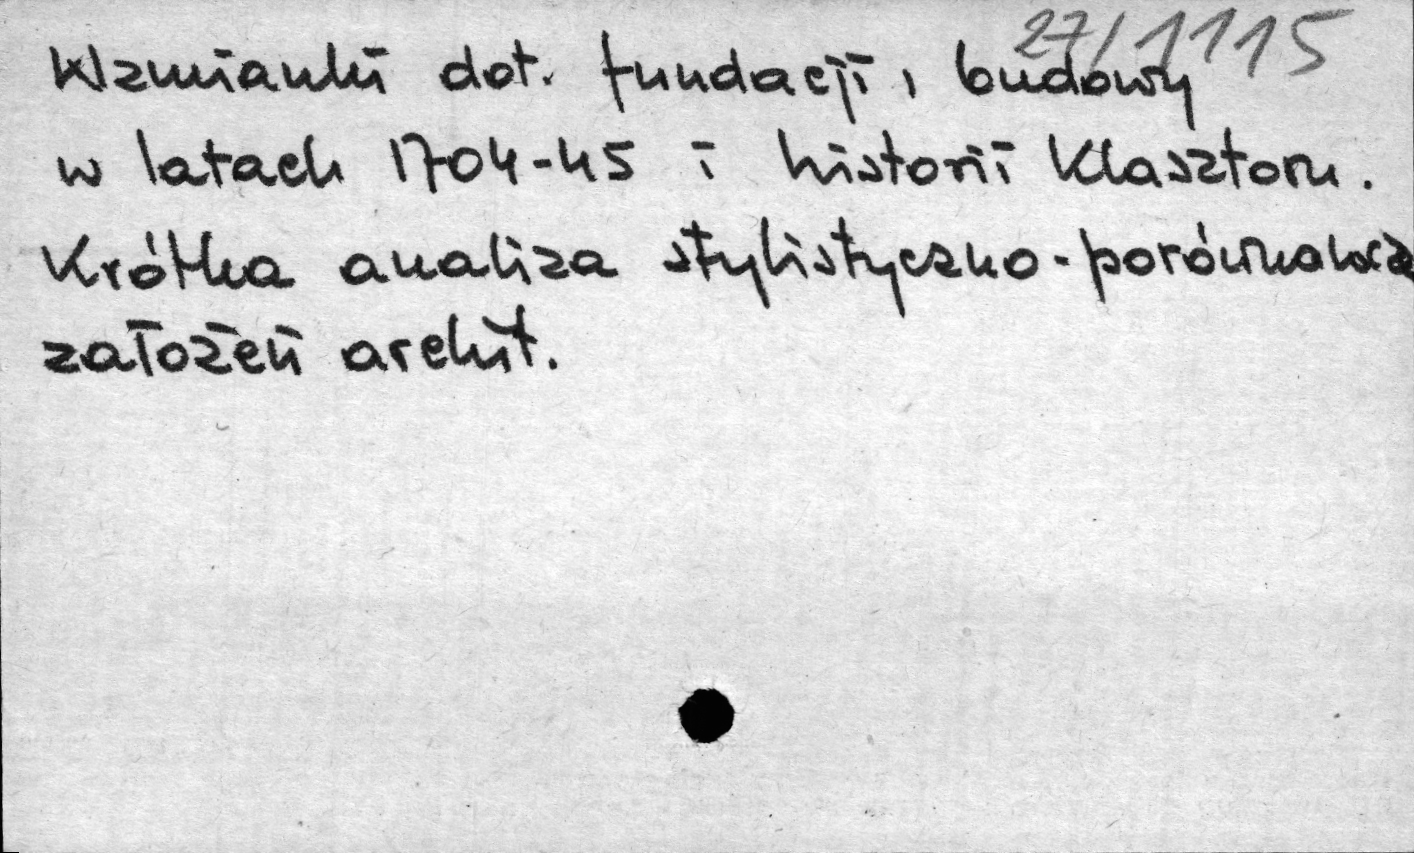 27/1115
Wzmianki dot. fundacji, budowy
w latach 1704-45 i historii Klasztoru.
Krótka analiza stylistyczno-porównawcza
założeń archit.